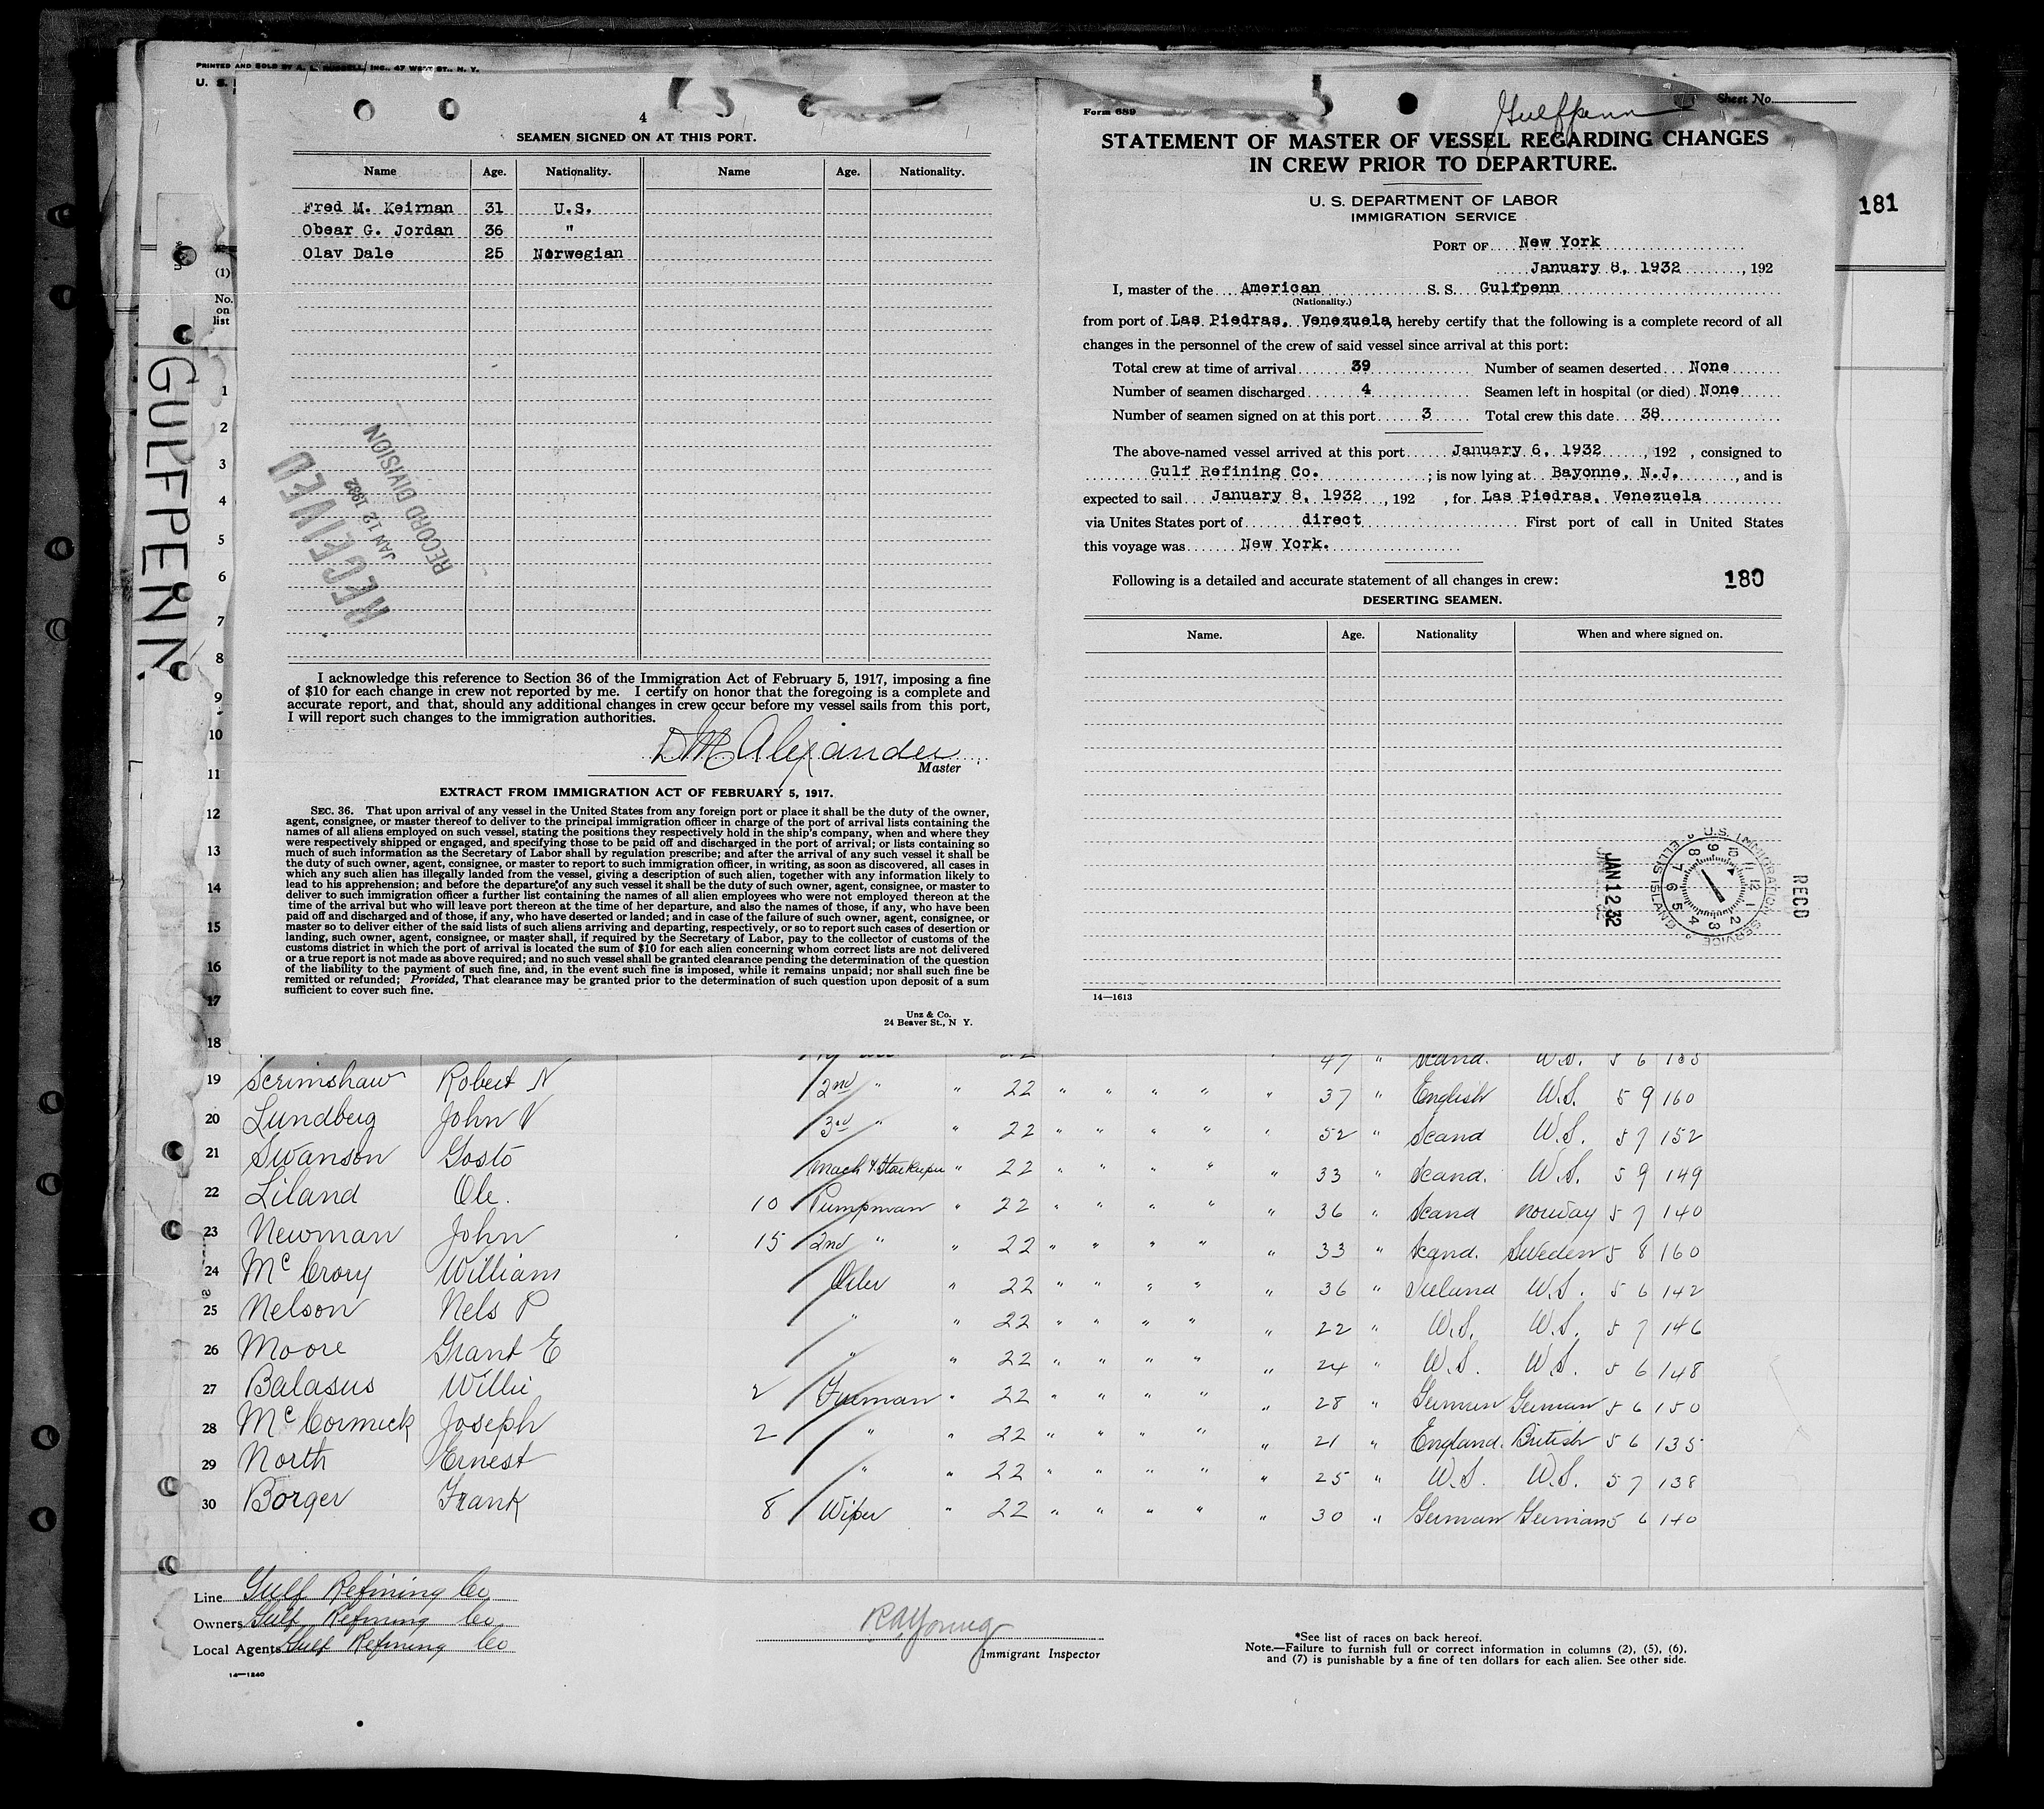 PRINTED AND SOLD BY A. L. RUSSELL, INC., 47 WEST ST., N. Y.
U. S.
(1)
No.
on
list
GULFPENN
4
SEAMEN SIGNED ON AT THIS PORT.
Name Age. Nationality. Name Age. Nationality.
Fred M. Keirnan 31 U.S.
Obear G. Jordan 36 "
Olav Dale 25 Norwegian
RECEIVED
JAN 12 1932
RECORD DIVISION
I acknowledge this reference to Section 36 of the Immigration Act of February 5, 1917, imposing a fine
of $10 for each change in crew not reported by me. I certify on honor that the foregoing is a complete and
accurate report, and that, should any additional changes in crew occur before my vessel sails from this port,
I will report such changes to the immigration authorities.
D M Alexander
Master
EXTRACT FROM IMMIGRATION ACT OF FEBRUARY 5, 1917.
SEC. 36. That upon arrival of any vessel in the United States from any foreign port or place it shall be the duty of the owner,
agent, consignee, or master thereof to deliver to the principal immigration officer in charge of the port of arrival lists containing the
names of all aliens employed on such vessel, stating the positions they respectively hold in the ship's company, when and where they
were respectively shipped or engaged, and specifying those to be paid off and discharged in the port of arrival; or lists containing so
much of such information as the Secretary of Labor shall by regulation prescribe; and after the arrival of any such vessel it shall be
the duty of such owner, agent, consignee, or master to report to such immigration officer, in writing, as soon as discovered, all cases in
which any such alien has illegally landed from the vessel, giving a description of such alien, together with any information likely to
lead to his apprehension; and before the departure of any such vessel it shall be the duty of such owner, agent, consignee, or master to
deliver to such immigration officer a further list containing the names of all alien employees who were not employed thereon at the
time of the arrival but who will leave port thereon at the time of her departure, and also the names of those, if any, who have been
paid off and discharged and of those, if any, who have deserted or landed; and in case of the failure of such owner, agent, consignee, or
master so to deliver either of the said lists of such aliens arriving and departing, respectively, or so to report such cases of desertion or
landing, such owner, agent, consignee, or master shall, if required by the Secretary of Labor, pay to the collector of customs of the
customs district in which the port of arrival is located the sum of $10 for each alien concerning whom correct lists are not delivered
or a true report is not made as above required; and no such vessel shall be granted clearance pending the determination of the question
of the liability to the payment of such fine, and, in the event such fine is imposed, while it remains unpaid; nor shall such fine be
remitted or refunded; Provided, That clearance may be granted prior to the determination of such question upon deposit of a sum
sufficient to cover such fine.
Unz & Co.
24 Beaver St., N Y.
Form 689
Gulfpenn
Sheet No.
STATEMENT OF MASTER OF VESSEL REGARDING CHANGES
IN CREW PRIOR TO DEPARTURE.
U. S. DEPARTMENT OF LABOR
IMMIGRATION SERVICE
181
PORT OF New York
January 8, 1932, 192
I, master of the American S. S. Gulfpenn
(Nationality.)
from port of Las Piedras, Venezuela, hereby certify that the following is a complete record of all
changes in the personnel of the crew of said vessel since arrival at this port:
Total crew at time of arrival 39 Number of seamen deserted None
Number of seamen discharged 4 Seamen left in hospital (or died) None
Number of seamen signed on at this port 3 Total crew this date 38
The above-named vessel arrived at this port January 6, 1932, 192 , consigned to
Gulf Refining Co. ; is now lying at Bayonne, N.J. , and is
expected to sail January 8, 1932, 192 , for Las Piedras, Venezuela
via Unites States port of direct First port of call in United States
this voyage was New York.
Following is a detailed and accurate statement of all changes in crew: 180
DESERTING SEAMEN.
Name. Age. Nationality When and where signed on.
U.S. IMMIGRATION SERVICE ELLIS ISLAND
JAN 12 32
RECD
14—1613
1
2
3
4
5
6
7
8
9
10
11
12
13
14
15
16
17
18 47 " Scand. U.S. 5 6
19 Scrimshaw Robert N 2nd " " 22 " " " " " 37 " English U.S. 5 9 160
20 Lundberg John V 3rd " " 22 " " " " " 52 " Scand U.S. 5 7 152
21 Swanson Gosto Mach & Storkeeper " 22 " " " " " 33 " Scand. U.S. 5 9 149
22 Liland Ole. 10 Pumpman " 22 " " " " " 36 " Scand Norway 5 7 140
23 Newman John 15 2nd " " 22 " " " " " 33 " Scand. Sweden 5 8 160
24 McCrory William Oiler " 22 " " " " " 36 " Ireland U.S. 5 6 142
25 Nelson Nels P " " 22 " " " " " 22 " U.S. U.S. 5 7 146
26 Moore Grant E " " 22 " " " " " 24 " U.S. U.S. 5 6 148
27 Balasus Willie 2 Fireman " 22 " " " " " 28 " German German 5 6 150
28 McCormick Joseph 2 " " 22 " " " " " 21 " England. British 5 6 135
29 North Ernest " " 22 " " " " " 25 " U.S. U.S. 5 7 138
30 Borger Frank 8 Wiper " 22 " " " " " 30 " German German 5 6 140
Line Gulf Refining Co
Owners Gulf Refining Co
Local Agents Gulf Refining Co
14—1240
R A Young
Immigrant Inspector
*See list of races on back hereof.
Note.—Failure to furnish full or correct information in columns (2), (5), (6),
and (7) is punishable by a fine of ten dollars for each alien. See other side.